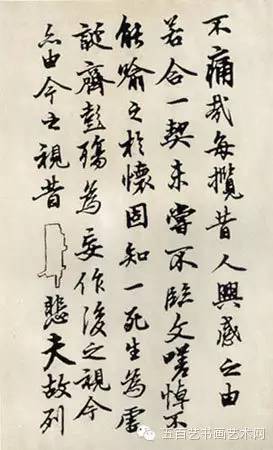 不痛哉每攬昔人興感之由
若合一契未嘗不臨文嗟悼不
能喻之於懷固知一死生為虛
誕齊彭殤為妄作後之視今
亦由今之視昔悲夫故列
五百艺书画艺术网